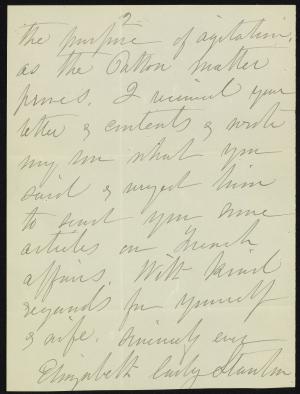 2
the purpose of agitation,
as the Patton matter
proves. I received your
letter & contents & wrote
my son what you
said & urged him
to send you some
articles on French
affairs. With kind
regards for yourself
& wife. Sincerely ever
Elizabeth Cady Stanton